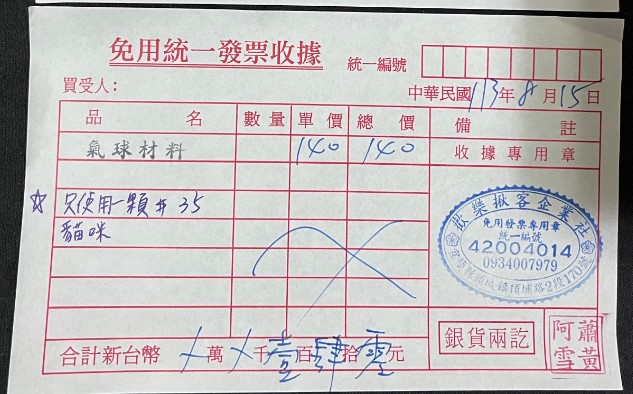 免用統一發票收據
統一編號
買受人：
中華民國113年8月15日
品名 數量 單價 總價 備註
氣球材料 140 140 收據專用章
☆只使用一顆#35
貓咪
歡樂揪客企業社
免用發票專用章
統一編號
42004014
0934007979
宜蘭縣頭城鎮頂埔路2段170號
合計新台幣 ㄨ萬ㄨ千壹百肆拾零元
銀貨兩訖
蕭黃阿雪